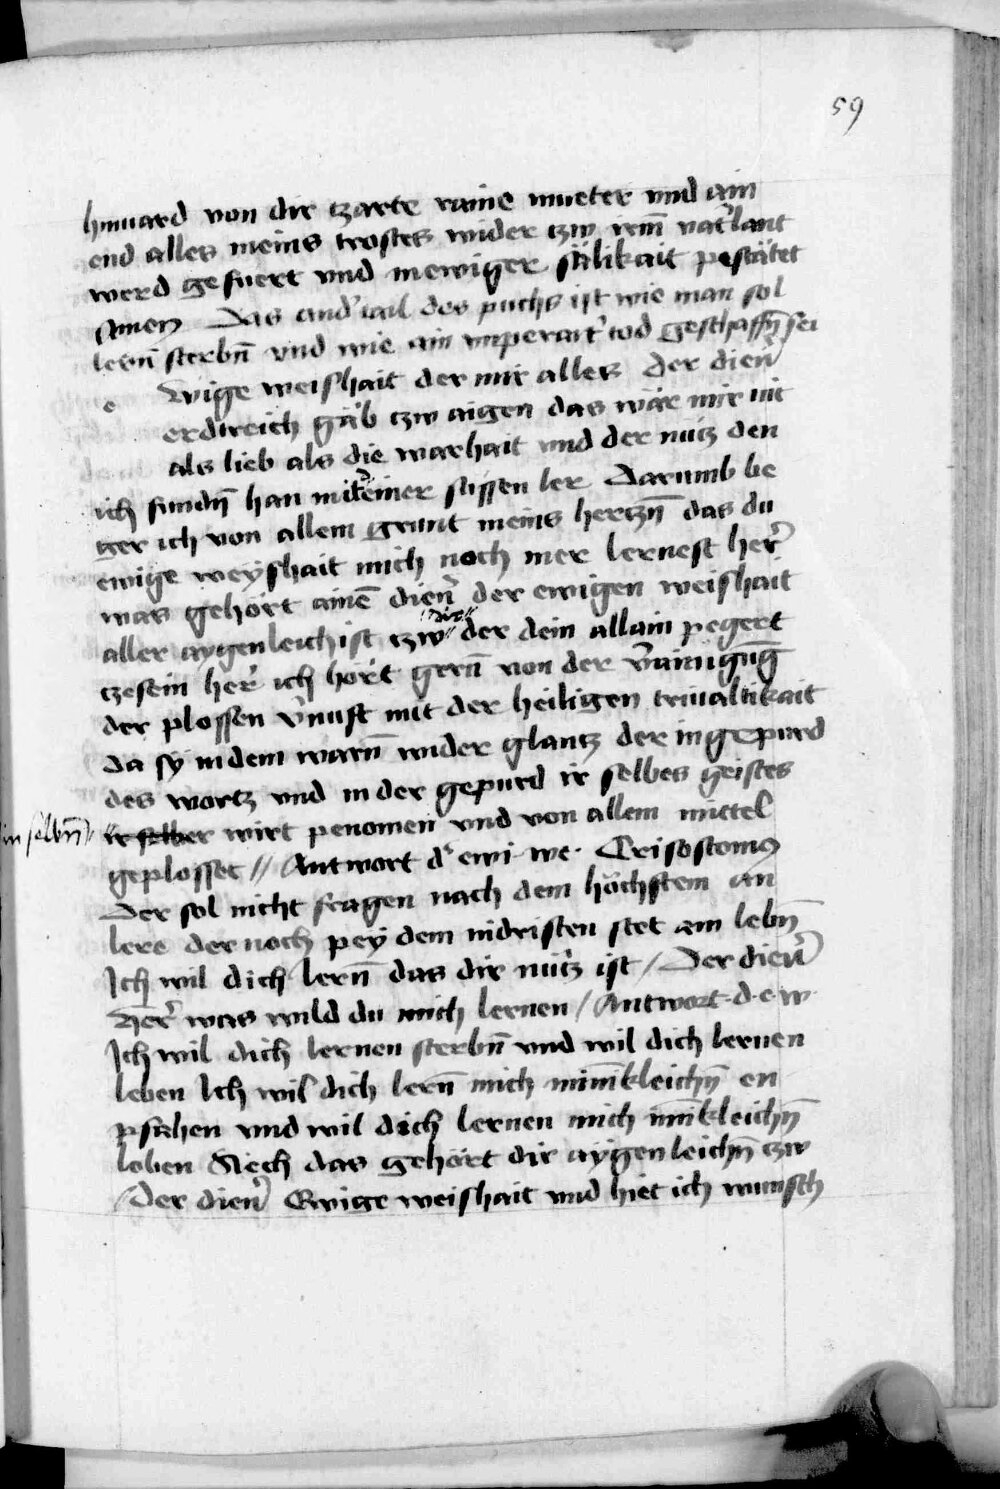 59
hinuard von dir tzarte raine mueter vnd ain
end alles meins trostes wider tzw irm̄ vat'lant
werd gefuert vnd in ewiger sälikait pestätet
Amen Das and' tail des puchs ist wie man sol
lern̄ sterbn̄ vnd wie ain vnperait' tod geschaffn̄ sei
e wige weishait der mir alles Der dien'
erdtreich gäb tzw aigen das wär mir nit
als lieb als die warhait vnd der nutz den
ich fundn̄ han mit deiner süssen ler Darumb be
ger ich von allem grunt meins hertzn̄ das du
ewige weyshait mich noch mer lernest her'
was gehört aine͞ dien' der ewigen weishait
aller aygenleichist tzw der dein allain pegert
dir
tzesein her' ich hört gern̄ von der v'ainigūg
der plossen v'nuft mit der heiligen triualtikait
da sy in dem warn̄ wider glantz der in gepurd
des wortz vnd in der gepurd ir selbes geistes
in selbn̄ ir selber wirt penomen vnd von allem mittel
geplosset // Antwort d' ewi· we· Crisostomus
Der sol nicht fragen nach dem höchstem an
lere der noch pey dem nidristen stet am lebn̄
Ich wil dich lern̄ das dir nütz ist / Der dien'
Her' was wild du mich lernen / Antwort· d· e· w·
Ich wil dich lernen sterbn̄ vnd wil dich lernen
leben Ich wil dich lern̄ mich min̄kleichn̄ en
pfahen vnd wil dich lernen mich in̄kleichn̄
loben Sech das gehört dir aygenleichn̄ tzw
/ Der dien' Ewige weishait vnd hiet ich wunsch